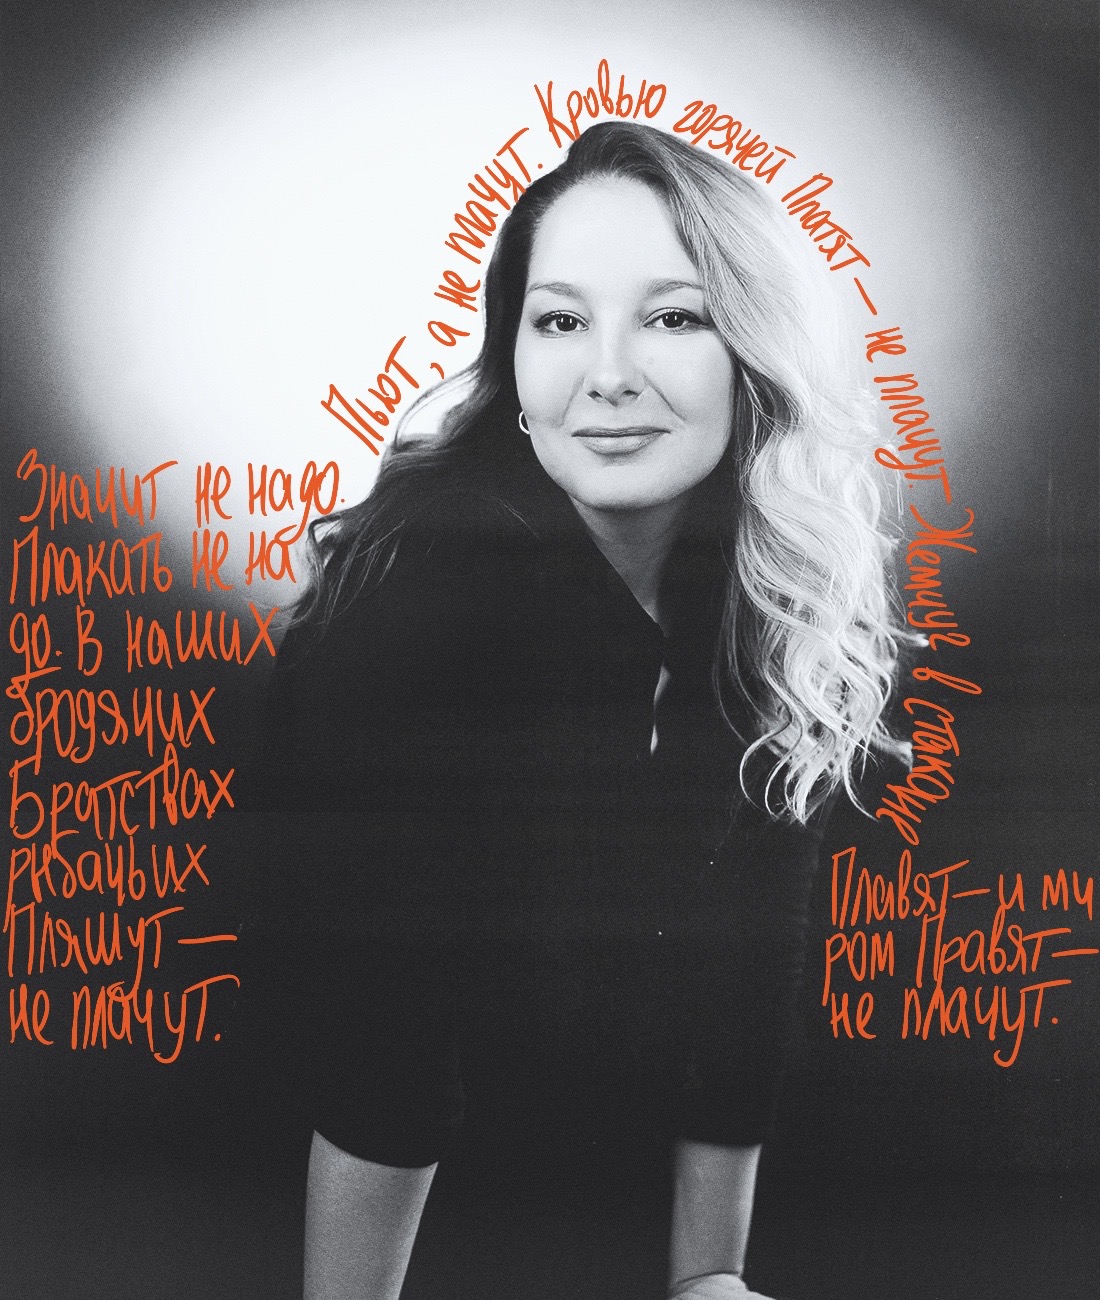 Значит не надо.
Плакать не на
до. В наших
бродячих
Братствах
рыбачьих
Пляшут —
не плачут.
Пьют, а не плачут. Кровью горячей Платят — не плачут. Жемчуг в стакане
Плавят — и ми
ром Правят —
не плачут.